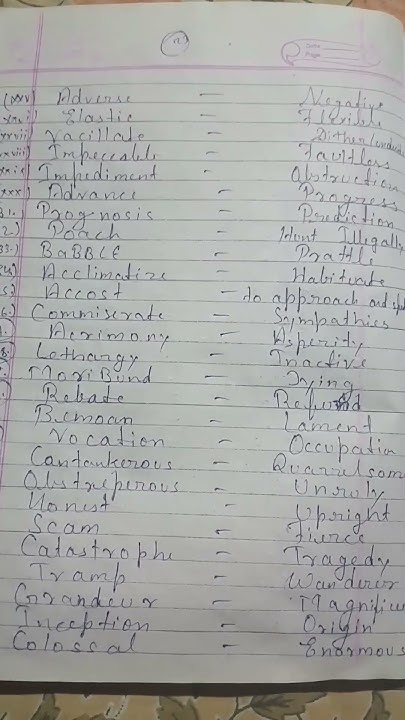 (xxv) Adverse — Negative
Elastic — Flexible
xxvii) Vacillate — Dither
xxviii) Impeccable — Faultless
Impediment — Obstruction
xxx) Advance — Progress
31.) Prognosis — Prediction
2) Poach — Hunt Illegally
33.) BaBBLE — Prattle
Acclimatize — Habituate
5.) Accost — to approach and
6.) Commiserate — Sympathies
Acrimony — Asperity
8. Lethargy — Inactive
MoriBund — Dying
Rebate — Refund
Bemoan — Lament
Vocation — Occupation
Cantankerous — Quarrelsom
Obstreperous — Unruly
Honest — Upright
Scam — Fierce
Catastrophe — Tragedy
Tramp — Wanderer
Grandeur —
Inception — Origin
Colossal — Enormous